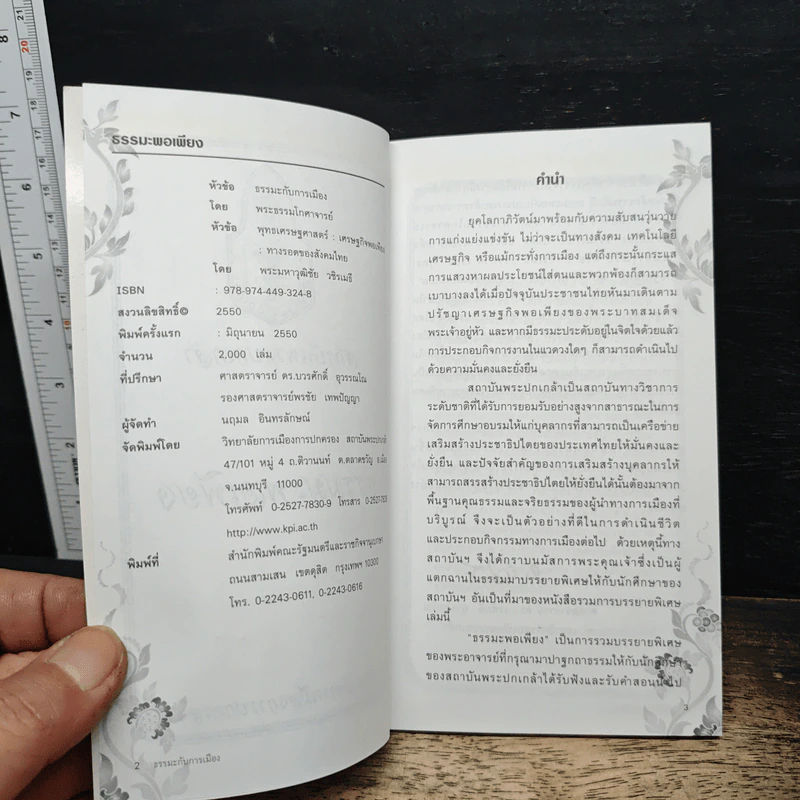 ธรรมะพอเพียง
หัวข้อ ธรรมะกับการเมือง
โดย พระธรรมโกศาจารย์
หัวข้อ พุทธเศรษฐศาสตร์ : เศรษฐกิจพอเพียง
: ทางรอดของสังคมไทย
โดย พระมหาวุฒิชัย วชิรเมธี
ISBN : 978-974-449-324-8
สงวนลิขสิทธิ์© 2550
พิมพ์ครั้งแรก : มิถุนายน 2550
จำนวน 2,000 เล่ม
ที่ปรึกษา ศาสตราจารย์ ดร.บวรศักดิ์ อุวรรณโณ
รองศาสตราจารย์พรชัย เทพปัญญา
ผู้จัดทำ นฤมล อินทรลักษณ์
จัดพิมพ์โดย วิทยาลัยการเมืองการปกครอง สถาบันพระปกเกล้า
47/101 หมู่ 4 ถ.ติวานนท์ ต.ตลาดขวัญ อ.เมือง
จ.นนทบุรี 11000
โทรศัพท์ 0-2527-7830-9 โทรสาร
http://www.kpi.ac.th
พิมพ์ที่ สำนักพิมพ์คณะรัฐมนตรีและราชกิจจานุเบกษา
ถนนสามเสน เขตดุสิต กรุงเทพฯ 10300
โทร. 0-2243-0611, 0-2243-0616
2 ธรรมะกับการเมือง
คำนำ
ยุคโลกาภิวัตน์มาพร้อมกับความสับสนวุ่นวาย
การแก่งแย่งแข่งขัน ไม่ว่าจะเป็นทางสังคม เทคโนโลยี
เศรษฐกิจ หรือแม้กระทั่งการเมือง แต่ถึงกระนั้นกระแส
การแสวงหาผลประโยชน์ใส่ตนและพวกพ้องก็สามารถ
เบาบางลงได้เมื่อปัจจุบันประชาชนไทยหันมาเดินตาม
ปรัชญาเศรษฐกิจพอเพียงของพระบาทสมเด็จ
พระเจ้าอยู่หัว และหากมีธรรมะประดับอยู่ในจิตใจด้วยแล้ว
การประกอบกิจการงานในแวดวงใดๆ ก็สามารถดำเนินไป
ด้วยความมั่นคงและยั่งยืน
สถาบันพระปกเกล้าเป็นสถาบันทางวิชาการ
ระดับชาติที่ได้รับการยอมรับอย่างสูงจากสาธารณะในการ
จัดการศึกษาอบรมให้แก่บุคลากรที่สามารถเป็นเครือข่าย
เสริมสร้างประชาธิปไตยของประเทศไทยให้มั่นคงและ
ยั่งยืน และปัจจัยสำคัญของการเสริมสร้างบุคลากรให้
สามารถสรรสร้างประชาธิปไตยให้ยั่งยืนได้นั้นต้องมาจาก
พื้นฐานคุณธรรมและจริยธรรมของผู้นำทางการเมืองที่
บริบูรณ์ จึงจะเป็นตัวอย่างที่ดีในการดำเนินชีวิต
และประกอบกิจกรรมทางการเมืองต่อไป ด้วยเหตุนี้ทาง
สถาบันฯ จึงได้กราบนมัสการพระคุณเจ้าซึ่งเป็นผู้
แตกฉานในธรรมมาบรรยายพิเศษให้กับนักศึกษาของ
สถาบันฯ อันเป็นที่มาของหนังสือรวมการบรรยายพิเศษ
เล่มนี้
"ธรรมะพอเพียง" เป็นการรวมบรรยายพิเศษ
ของพระอาจารย์ที่กรุณามาปาฐกถาธรรมให้กับนักศึกษา
ของสถาบันพระปกเกล้าได้รับฟังและรับคำสอนนี้ไป
3